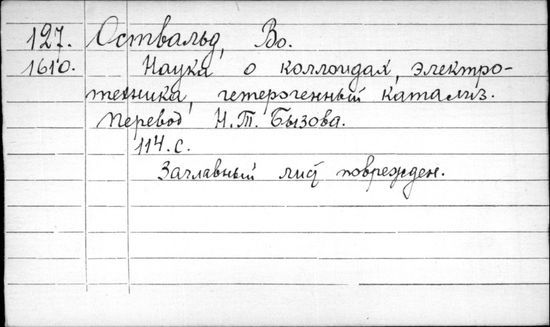 127. Оствальд, Во.
1610. Наука о коллоидах, электро-
техника, гетерогенный катализ.
Перевод Н.Т. Бызова.
114.с.
Заглавный лист поврежден.